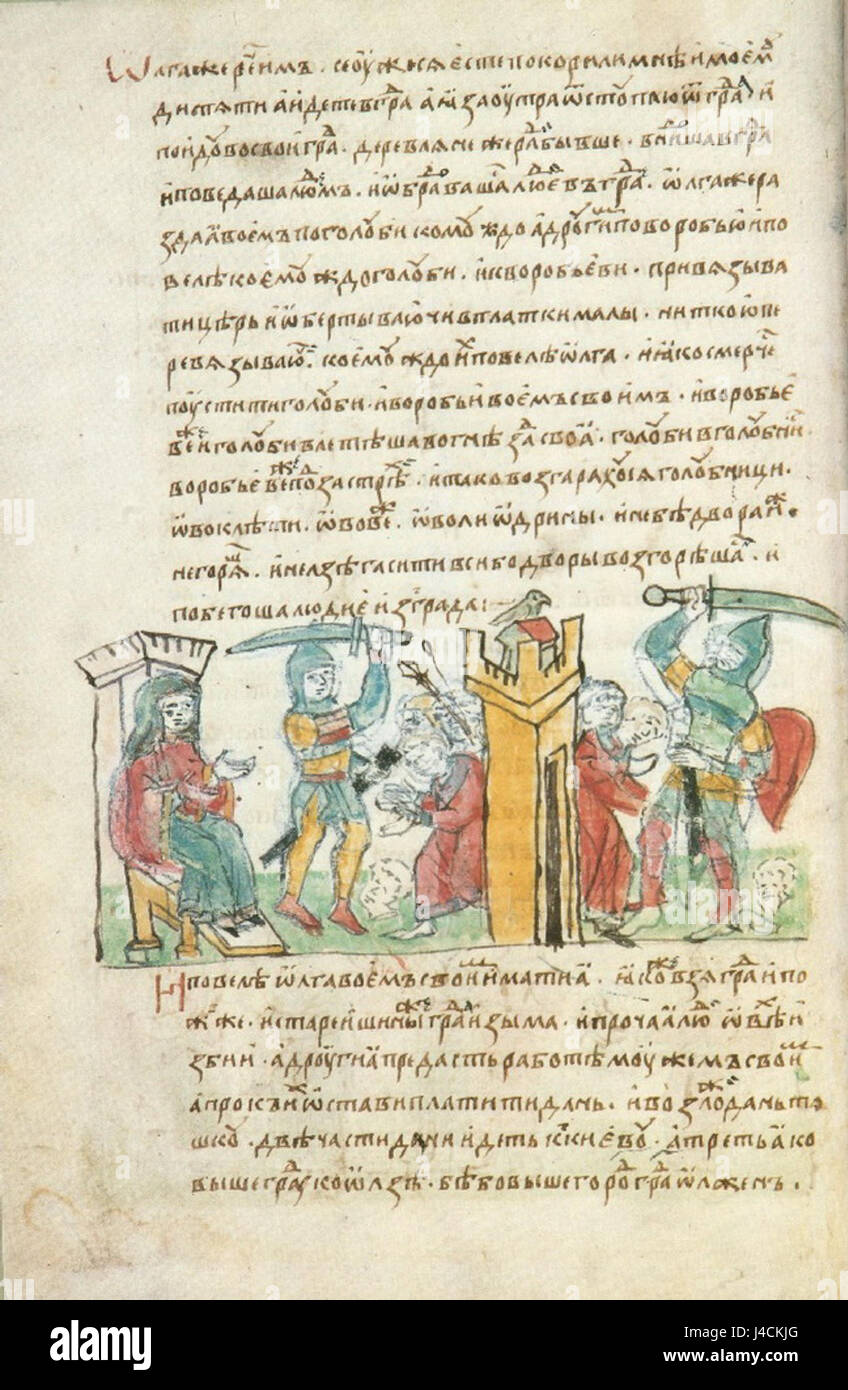 Ѡлгажерⷱ҇еимъ · сеоужвꙑестепокорилимнѣимоемꙋ
дитѧтиаидетевграⷣаꙗзаоутраѿстꙋплюѿграⷣаи
поидꙋвосвоиграⷣ · деревлѧнежераⷣбывше · внидошавграⷣ
иповедашалюдⷨемъ · иѡбрадⷪвашасѧлюдⷷевъграⷣ · Ѡлгажера
здааⷡоемъпоголꙋбикомꙋждоадрꙋгиⷨповоробьюипо
велѣкоемꙋждоголꙋби · икворобьеви · привѧзыва
тицѣрьиѡбертываючивплаткималы · ниткоюпе
ревѧзываюⷮ · коемꙋждоиⷯповелѣѡлга · иꙗкосмерчесѧ
поуститиголꙋбииворобьивоемъсвоимъ · иворобье
вежⷷиголꙋбивлетѣшавогнѣздасвоꙗ · голꙋбивголꙋбники
воробьевежⷷподⷣзастрѣхⷯи · итаковозгарахꙋсѧголꙋбници ·
ѿвоклѣти · ѿвовежⷷ · ѿволиѿдрины · инебѣдвораидежⷷ
негорѧшⷷ · инелзѣгаситивсибодворывозгорѣшасѧ · и
побегошалюдиеизграда :
Иповелѣѡлгавоемъсвоимиматиа · ꙗкожⷷвзѧграⷣипо
жьжⷷе · истареишинжⷷыградⷣаизыма · ипрочаꙗлюдⷣиѡвѣхⷯи
зби · адрꙋгиꙗпредастьработѣмоужемъсвоиⷨ
апрокъихⷯѡставиплатитидань · ивозложⷷидⷣаньтѧ
шкꙋ · двѣчастиданиидетькКиевꙋ · атретьꙗко
вышеградⷣꙋкоѡлзѣ · бѣбовышегородⷣградⷣѡлжень .
alamy
Image ID: J4CKJG
www.alamy.com